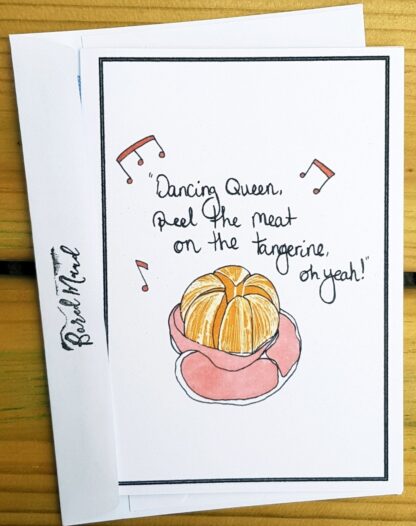 "Dancing Queen,
Peel the meat
on the tangerine,
oh yeah!"